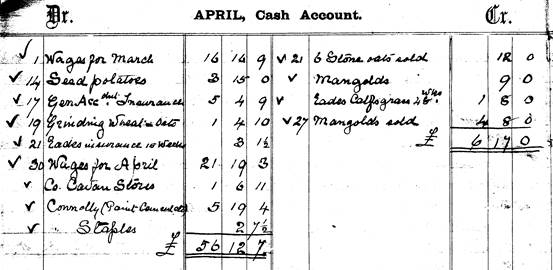 Dr. APRIL, Cash Account. Cr.
✓ 1 Wages for March 16 14 9
✓ 14 Seed potatoes 3 15 0
✓ 17 Gen Acc dnt. Insurance 5 4 9
✓ 19 Grinding Wheat & Oats 1 4 10
✓ 21 Eades insurance 10 Weeks 3 1½
✓ 30 Wages for April 21 19 3
✓ Co. Cavan Stores 1 6 11
✓ Connolly (Paint Cement etc) 5 19 4
✓ Staples 2 7½
£ 56 12 7
✓ 21 6 Stone oats sold 12 0
✓ Mangolds 9 0
✓ Eades Calfsgrass Wks 1 8 0
✓ 27 Mangolds sold 4 8 0
£ 6 17 0